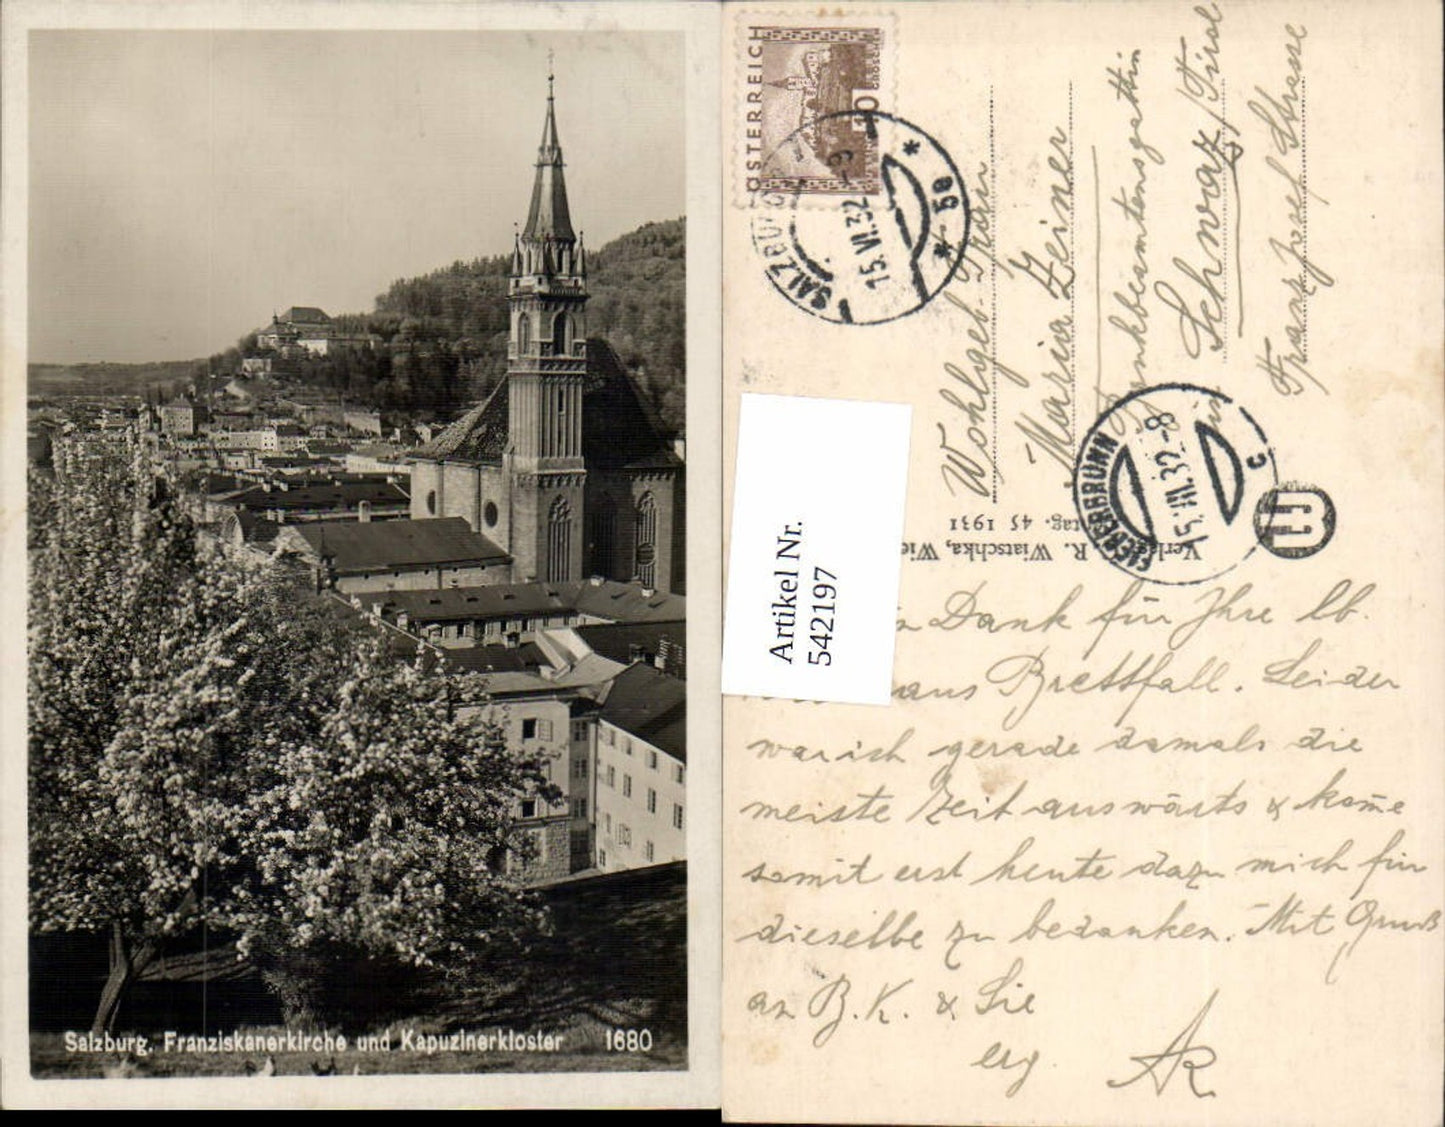 Salzburg. Franziskanerkirche und Kapuzinerkloster 1680
ÖSTERREICH
10
GROSCHEN
SALZBURG
15.VI.32 -9
* 5e *
Wohlgeb. Frau
Maria Zeiner
Bankbeamtensgattin
in Schwaz/Tirol
Franz Josef Strasse
FIEBERBRUNN
15.VII.32.-8
c
Verlag R. Wiatschka, Wie
tag. 45 1931
Artikel Nr.
542197
Dank für Ihre lb.
aus Brettfall. Leider
war ich gerade damals die
meiste Zeit auswärts & kom̄e
somit erst heute dazu mich für
dieselbe zu bedanken. Mit Gruß
an B. K. & Sie
erg. AR